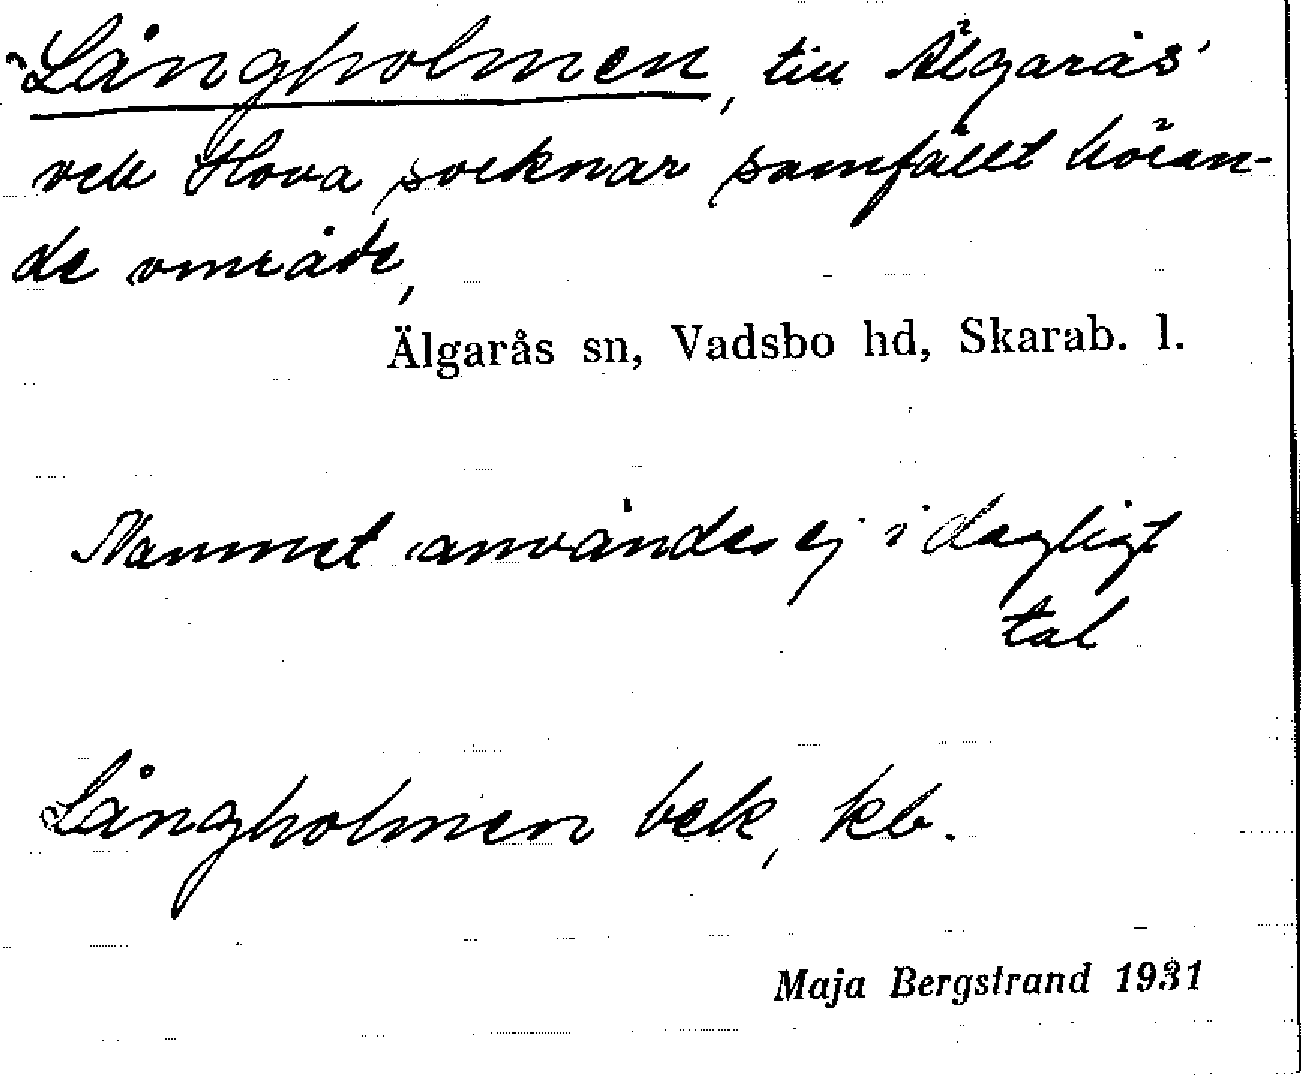 Långholmen, till Älgarås
och Hova socknar samfällt höran-
de område,
Älgarås sn, Vadsbo hd, Skarab. l.
Namnet användes ej i dagligt
tal
Långholmen bek, kb.
Maja Bergstrand 1931